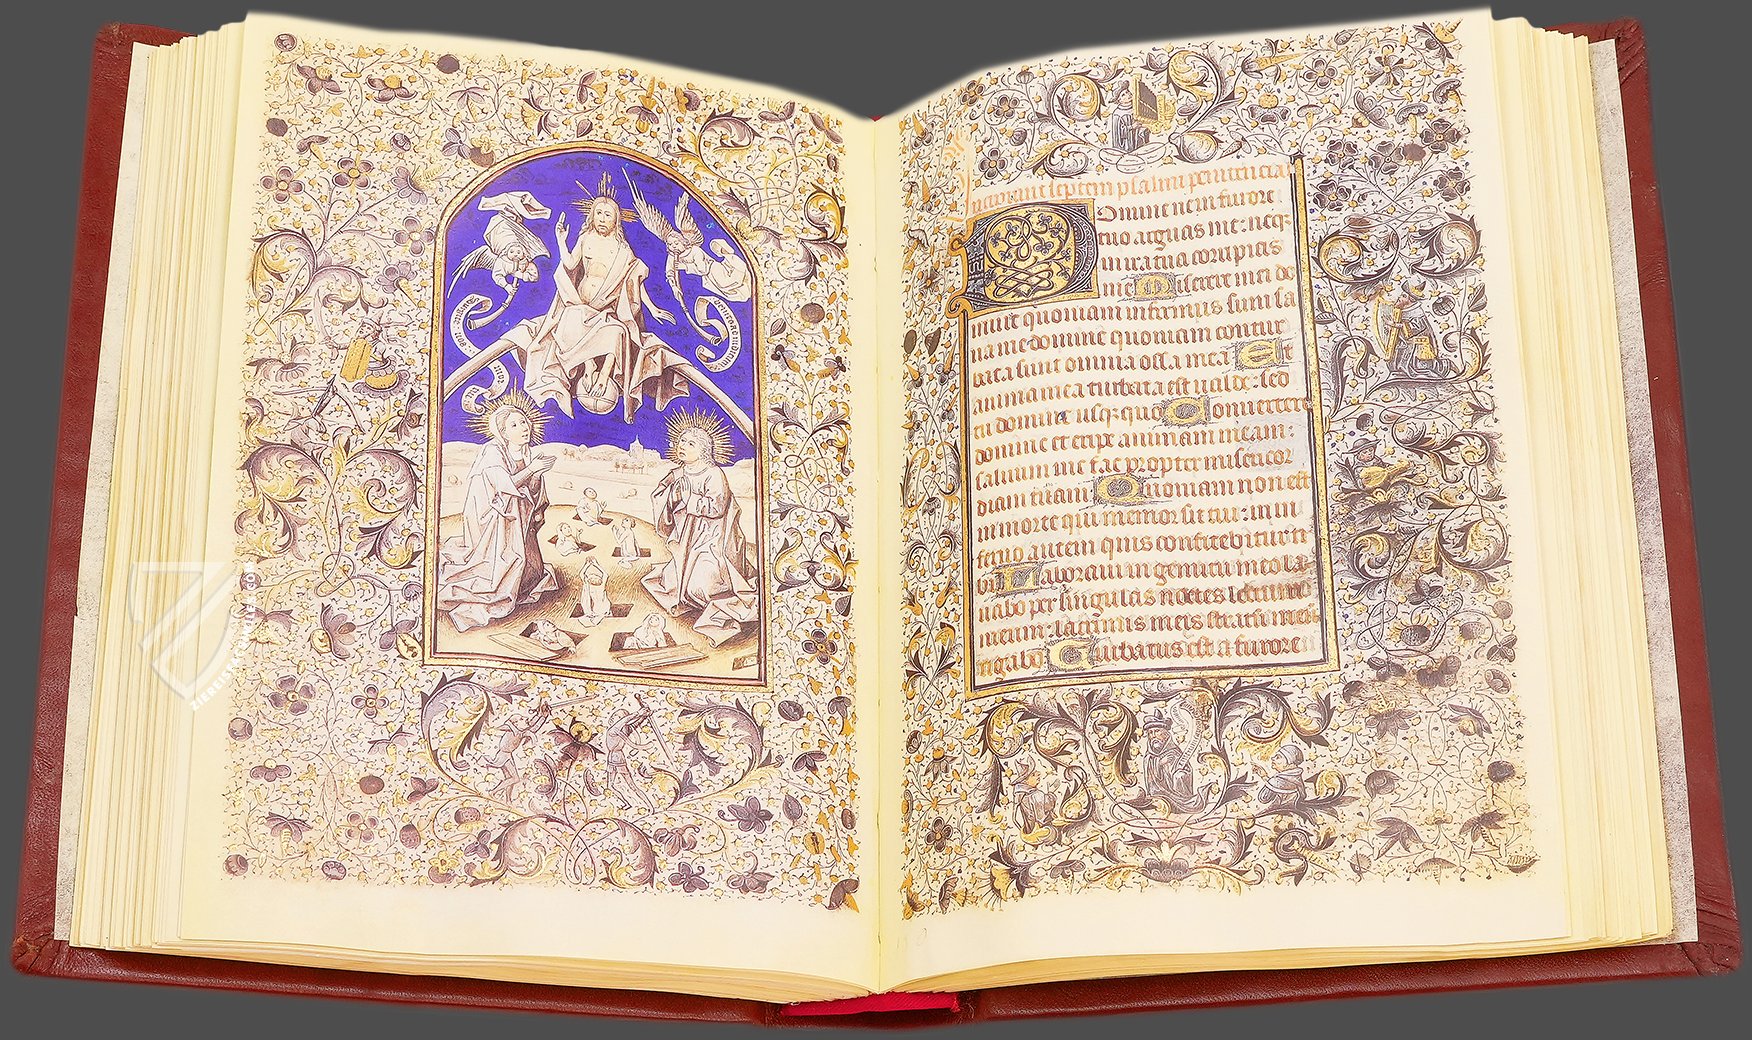 Surgite mortui
venite ad iudicium
Incipiunt septem psalmi penitencia
Domine ne in furore
tuo arguas me: neqz
in ira tua corripias
me Miserere mei do
mine quoniam infirmus sum sa
na me domine quoniam contur
bata sunt omnia ossa mea Et
anima mea turbata est valde: sed
tu domine usqz quo Convertere
domine et eripe animam meam:
salvum me fac propter misericor
diam tuam Quoniam non est
in morte qui memor sit tui: in in
ferno autem quis confitebitur ti
bi Laboravi in gemitu meo la
vabo per singulas noctes lectum
meum: lacrimis meis stratum meum
rigabo Turbatus est a furore
ZIEREIS FAKSIMILES